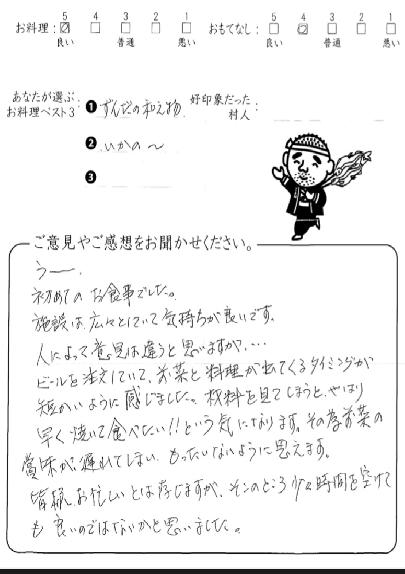 5 4 3 2 1
お料理：☑ □ □ □ □
良い 普通 悪い
5 4 3 2 1
おもてなし：□ ☑ □ □ □
良い 普通 悪い
あなたが選ぶ
お料理ベスト3：
❶ ずんだの和え物
❷ いかの〜
❸
好印象だった
村人：
ご意見やご感想をお聞かせください。
うー.
初めてのお食事でした。
施設は広々としていて気持ちが良いです。
人によって意見は違うと思いますが、...
ビールを注文していて、お菜と料理が出てくるタイミングが
短かいように感じました。材料を見てしまうと、やはり
早く焼いて食べたい!!という気になります。その為お菜の
賞味が遅れてしまい、もったいないように思えます。
皆様、お忙しいとは存じますが、そこのところ少々時間を空けて
も良いのではないかと思いました。